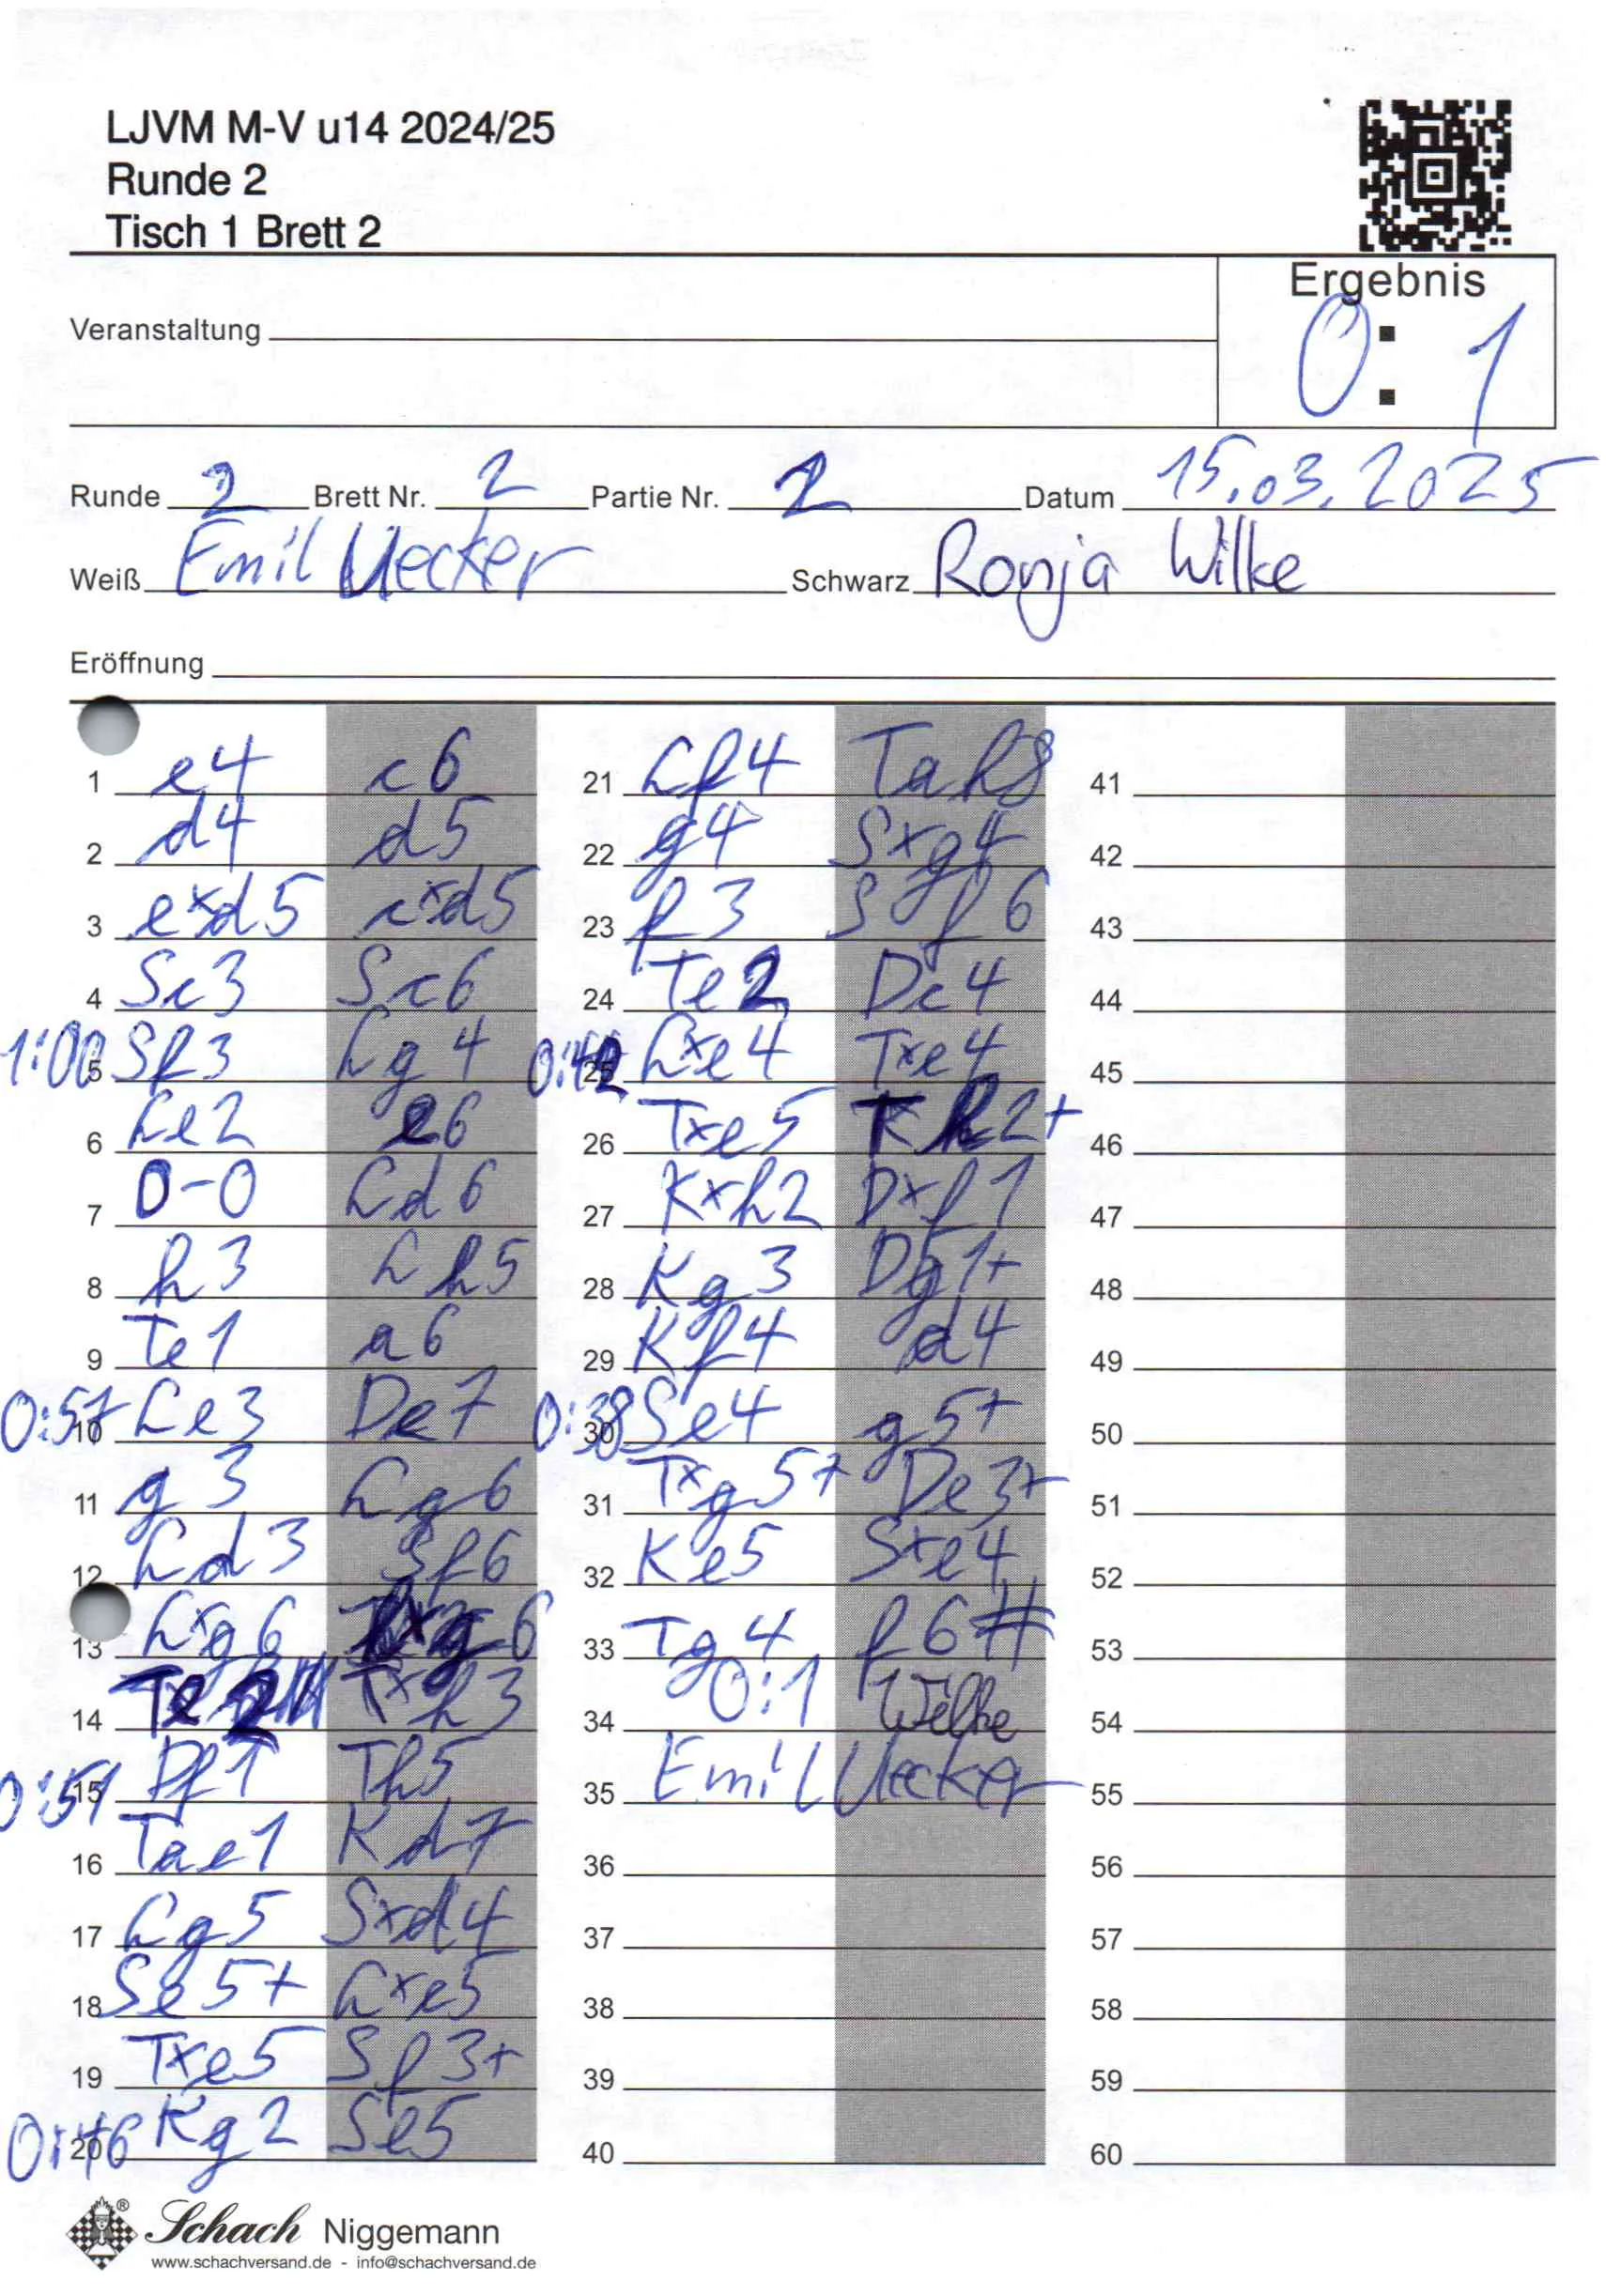 LJVM M-V u14 2024/25
Runde 2
Tisch 1 Brett 2
Ergebnis
0 : 1
Veranstaltung
Runde 2 Brett Nr. 2 Partie Nr. 2 Datum 15.03.2025
Weiß Emil Uecker Schwarz Ronja Wilke
Eröffnung
1 e4 c6
2 d4 d5
3 exd5 cxd5
4 Sc3 Sc6
1:00 5 Sf3 Lg4
6 Le2 e6
7 0-0 Ld6
8 h3 Lh5
9 Te1 a6
0:57 10 Le3 De7
11 g3 Lg6
12 Ld3 Sf6
13 Lxg6 hxg6
14 Te2 Txh3
0:51 15 Df1 Th5
16 Tae1 Kd7
17 Lg5 Sxd4
18 Se5+ Lxe5
19 Txe5 Sf3+
0:46 20 Kg2 Se5
21 Lf4 Tah8
22 g4 Sxg4
23 f3 Sf6
24 Te2 Dc4
0:42 25 Lxe4 Txe4
26 Txe5 Th2+
27 Kxh2 Dxf1
28 Kg3 Dg1+
29 Kf4 d4
0:38 30 Se4 g5+
31 Txg5+ De3+
32 Ke5 Sxe4
33 Tg4 f6#
34 0:1 Wilke
35 Emil Uecker
36
37
38
39
40
41
42
43
44
45
46
47
48
49
50
51
52
53
54
55
56
57
58
59
60
Schach Niggemann
www.schachversand.de - info@schachversand.de